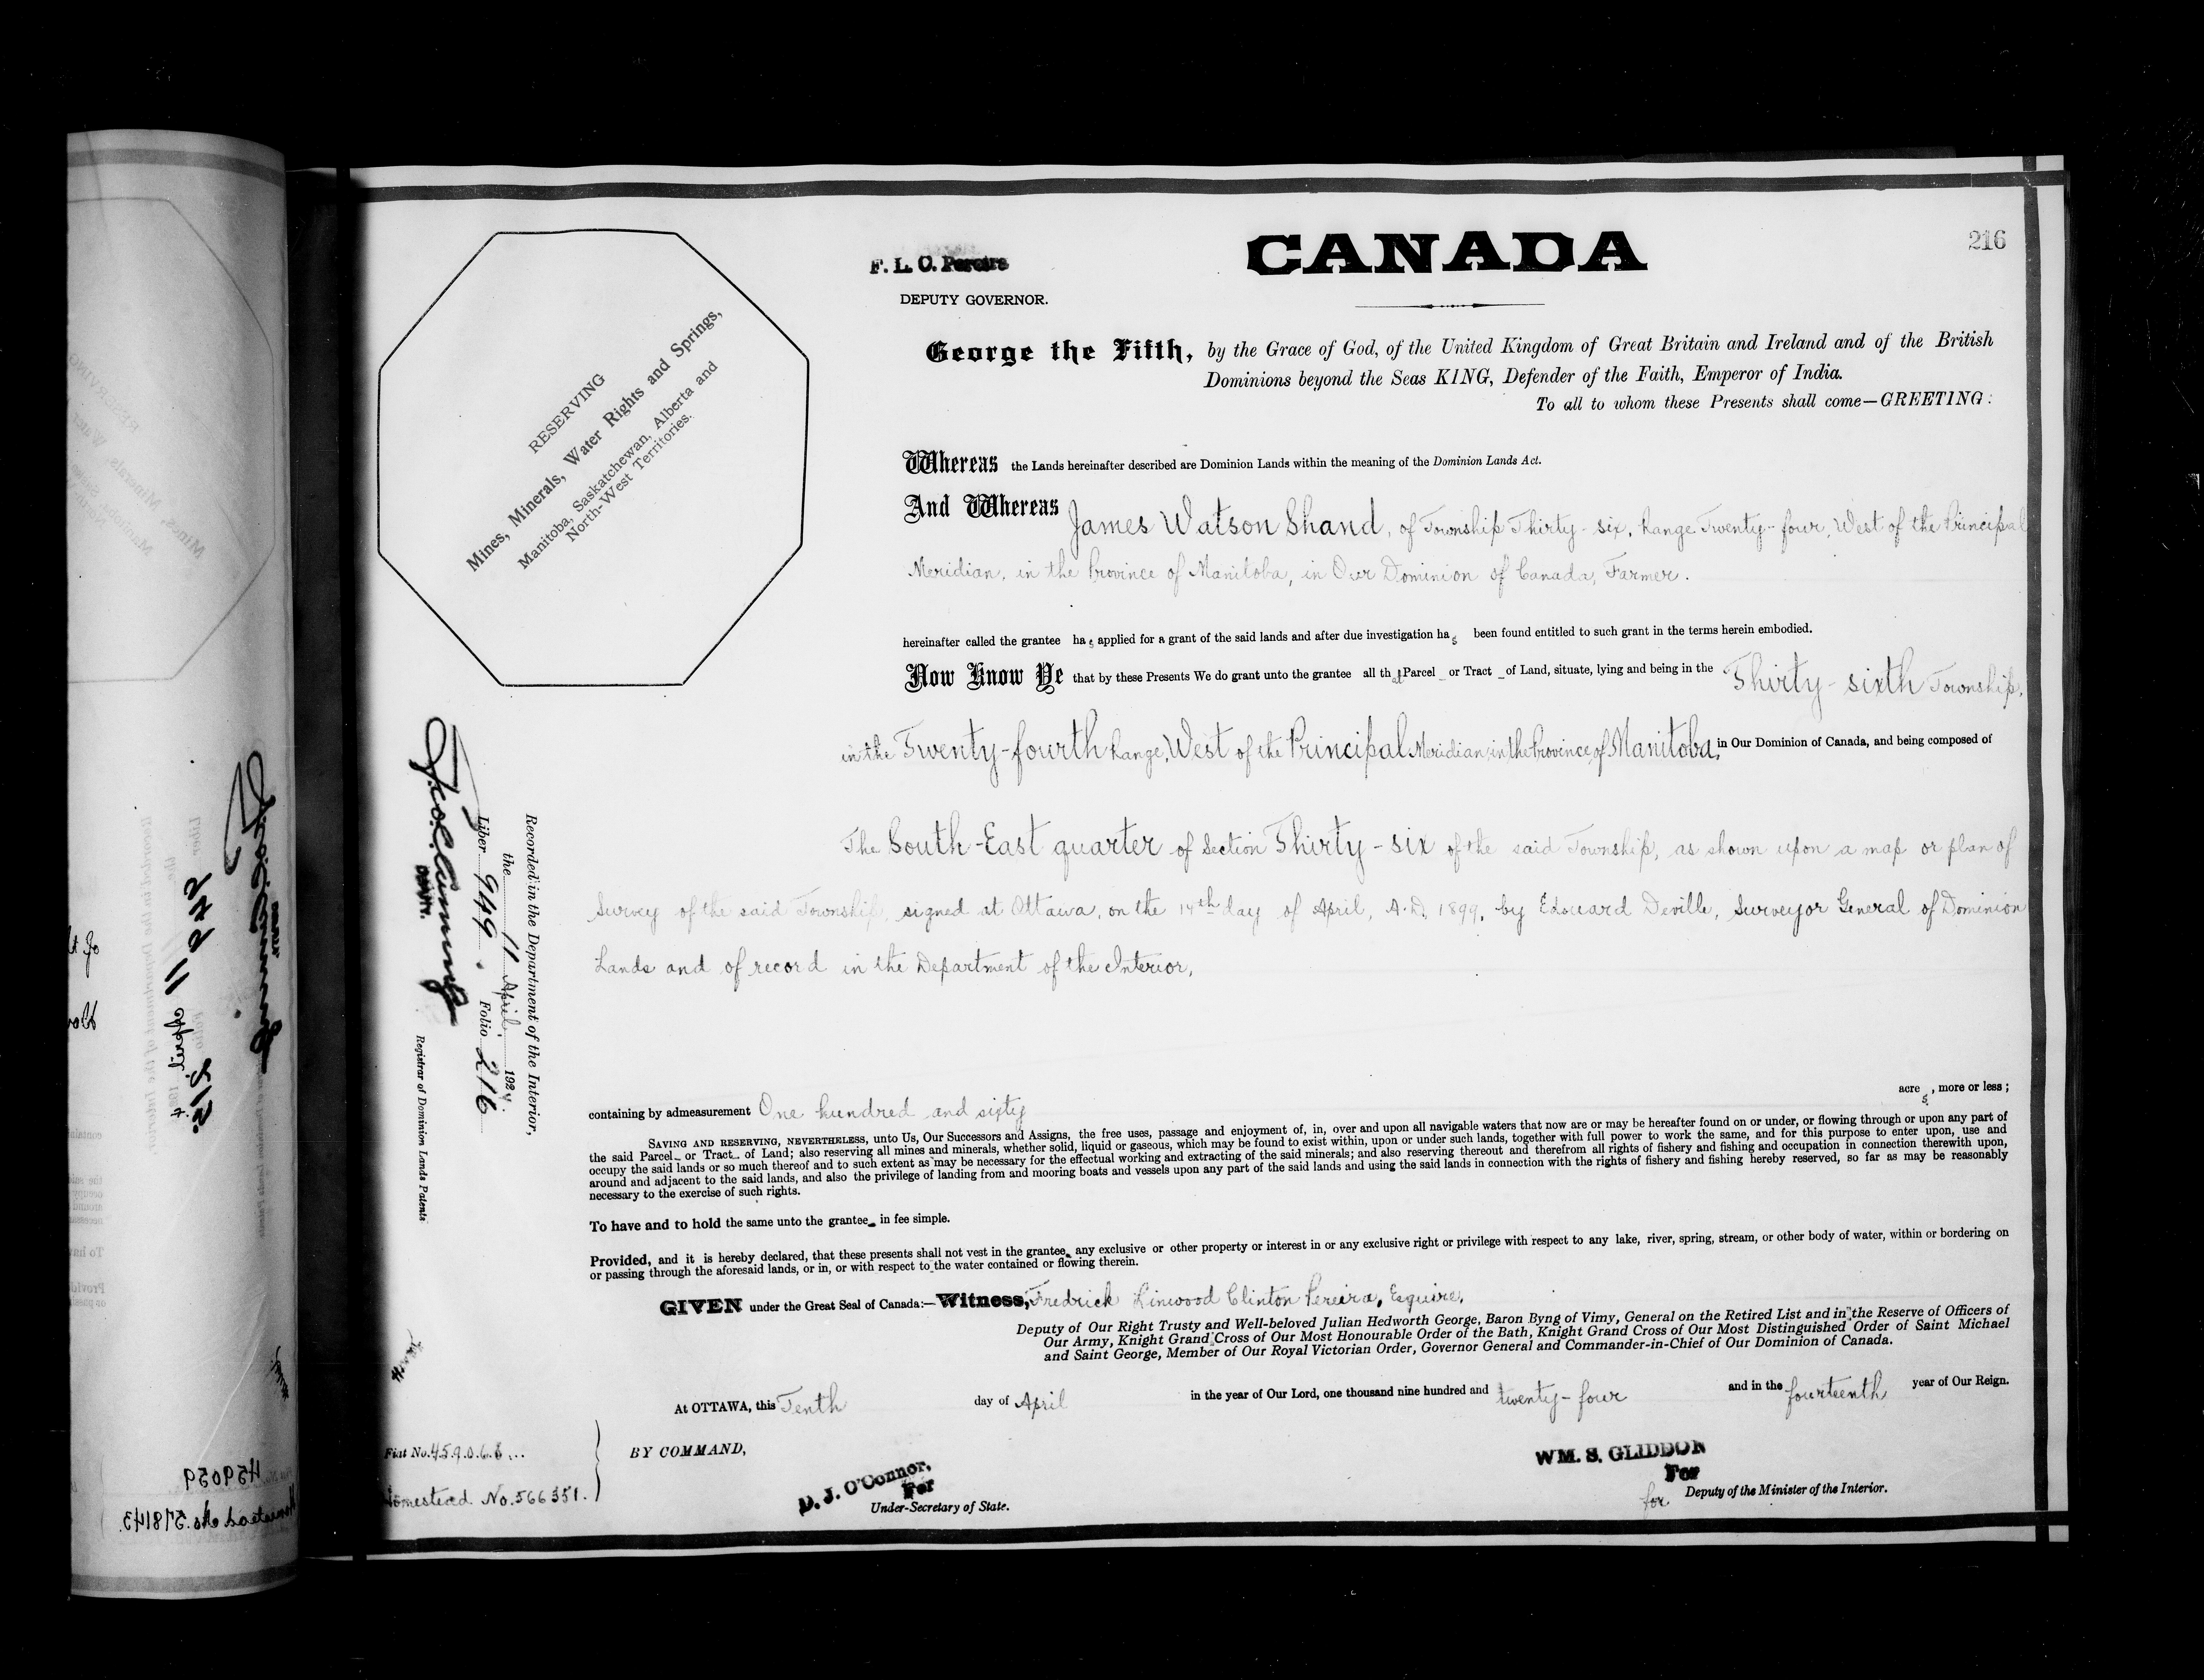 216
CANADA
F. L. C. Pereira
DEPUTY GOVERNOR.
RESERVING
Mines, Minerals, Water Rights and Springs,
Manitoba, Saskatchewan, Alberta and
North-West Territories.
George the Fifth, by the Grace of God, of the United Kingdom of Great Britain and Ireland and of the British
Dominions beyond the Seas KING, Defender of the Faith, Emperor of India.
To all to whom these Presents shall come—GREETING:
Whereas the Lands hereinafter described are Dominion Lands within the meaning of the Dominion Lands Act.
And Whereas James Watson Shand, of Township Thirty-six, Range Twenty-four, West of the Principal
Meridian, in the Province of Manitoba, in Our Dominion of Canada, Farmer.
hereinafter called the grantee has applied for a grant of the said lands and after due investigation has been found entitled to such grant in the terms herein embodied.
Now Know Ye that by these Presents We do grant unto the grantee all that Parcel or Tract of Land, situate, lying and being in the Thirty-sixth Township,
in the Twenty-fourth Range, West of the Principal Meridian, in the Province of Manitoba, in Our Dominion of Canada, and being composed of
The South-East quarter of Section Thirty-six of the said Township, as shown upon a map or plan of
Survey of the said Township, signed at Ottawa, on the 14th day of April, A.D. 1899, by Edouard Deville, Surveyor General of Dominion
Lands and of record in the Department of the Interior,
containing by admeasurement One hundred and sixty acres, more or less;
SAVING AND RESERVING, NEVERTHELESS, unto Us, Our Successors and Assigns, the free uses, passage and enjoyment of, in, over and upon all navigable waters that now are or may be hereafter found on or under, or flowing through or upon any part of
the said Parcel or Tract of Land; also reserving all mines and minerals, whether solid, liquid or gaseous, which may be found to exist within, upon or under such lands, together with full power to work the same, and for this purpose to enter upon, use and
occupy the said lands or so much thereof and to such extent as may be necessary for the effectual working and extracting of the said minerals; and also reserving thereout and therefrom all rights of fishery and fishing and occupation in connection therewith upon,
around and adjacent to the said lands, and also the privilege of landing from and mooring boats and vessels upon any part of the said lands and using the said lands in connection with the rights of fishery and fishing hereby reserved, so far as may be reasonably
necessary to the exercise of such rights.
To have and to hold the same unto the grantee in fee simple.
Provided, and it is hereby declared, that these presents shall not vest in the grantee any exclusive or other property or interest in or any exclusive right or privilege with respect to any lake, river, spring, stream, or other body of water, within or bordering on
or passing through the aforesaid lands, or in, or with respect to the water contained or flowing therein.
GIVEN under the Great Seal of Canada:—Witness, Fredrick Linwood Clinton Pereira, Esquire,
Deputy of Our Right Trusty and Well-beloved Julian Hedworth George, Baron Byng of Vimy, General on the Retired List and in the Reserve of Officers of
Our Army, Knight Grand Cross of Our Most Honourable Order of the Bath, Knight Grand Cross of Our Most Distinguished Order of Saint Michael
and Saint George, Member of Our Royal Victorian Order, Governor General and Commander-in-Chief of Our Dominion of Canada.
At OTTAWA, this Tenth day of April in the year of Our Lord, one thousand nine hundred and twenty-four and in the fourteenth year of Our Reign.
BY COMMAND,
D. J. O'Connor.
For
Under-Secretary of State.
WM. S. GLIDDON
For
for Deputy of the Minister of the Interior.
Fiat No. 459068
Homestead No. 566351.
Recorded in the Department of the Interior,
the 11 April, 1924.
Liber 949. Folio 216
DEPUTY.
Registrar of Dominion Lands Patents
949
11 April
215
459059
Homestead No. 578143.